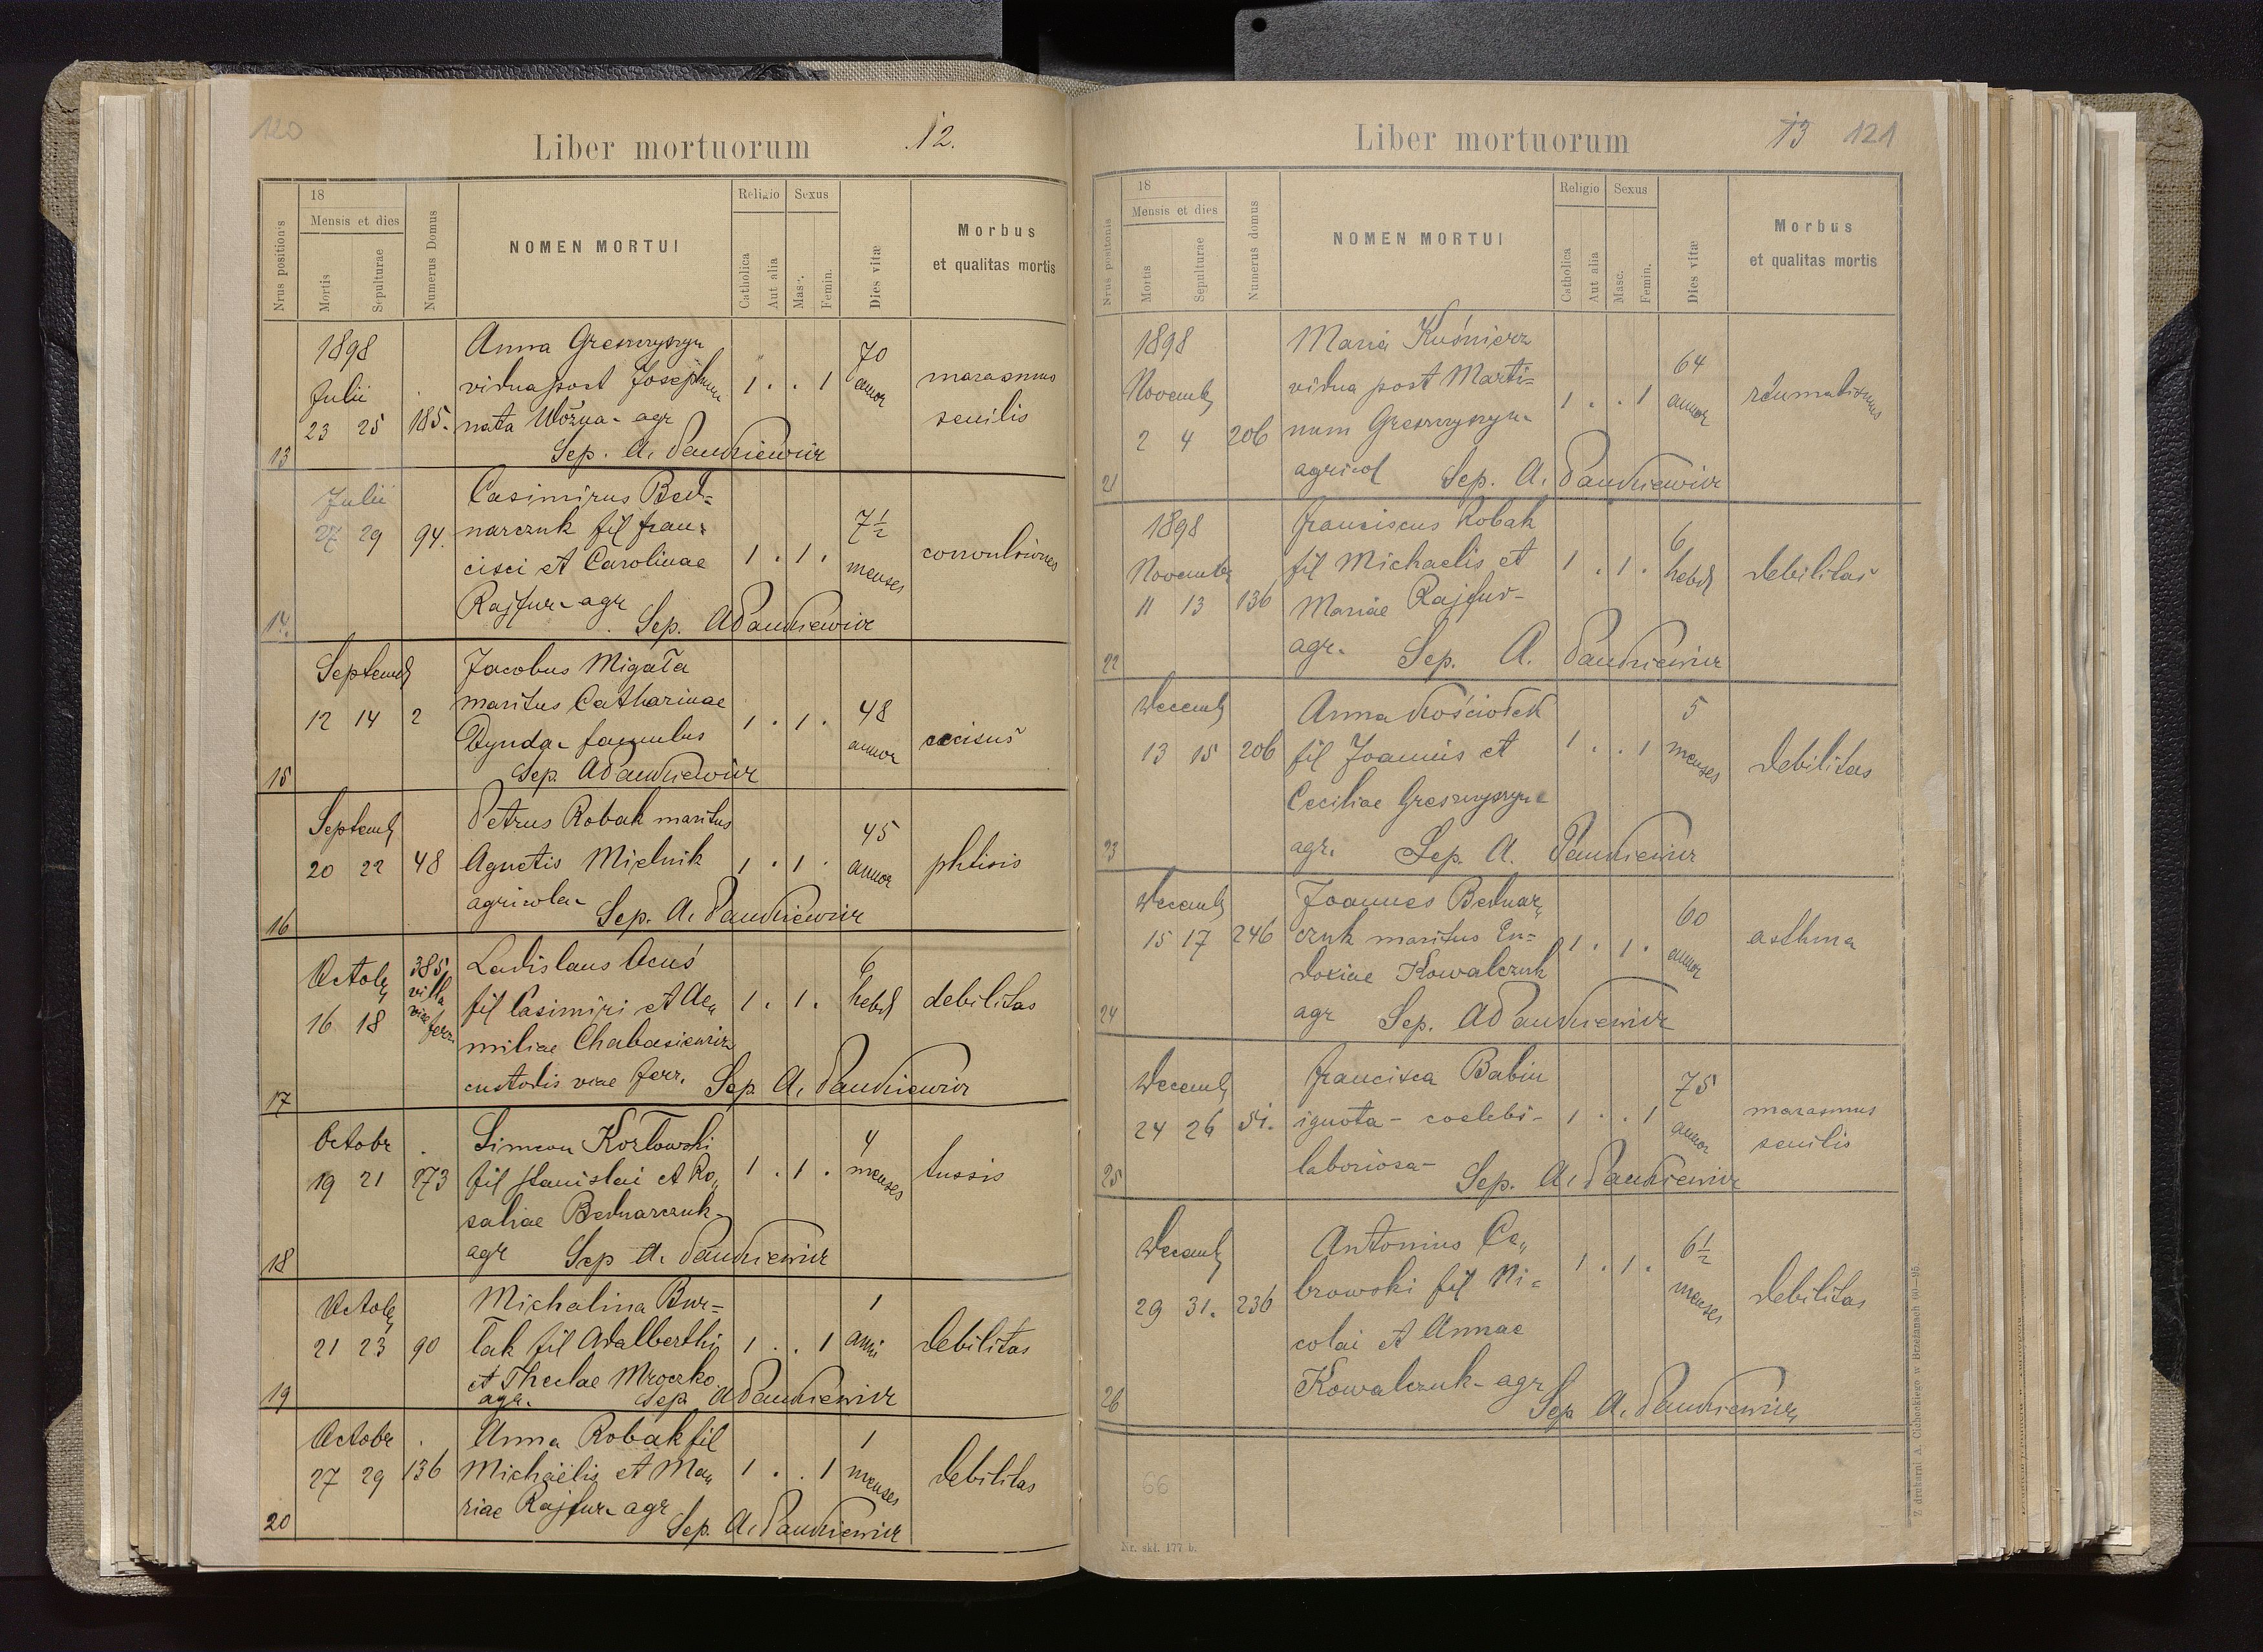 120
Liber mortuorum 12.
Nrus positionis
18
Mensis et dies
Mortis
Sepulturae
Numerus Domus
NOMEN MORTUI
Religio
Catholica
Aut alia
Sexus
Masc.
Femin.
Dies vitæ
Morbus
et qualitas mortis
1898 Anna Greszczyszyn
Julii vidua post Josephum 1 . . 1 70 annor marasmus
23 25 185. nata Woźna - agr senilis
13 Sep. A. Pankiewicz
Julii Casimirus Bed=
27 29 94. narczuk fil fran= 7½
cisci et Carolinae 1 . 1 . menses convulsiones
14. Rajfur - agr Sep. A Pankiewicz
Septemb Jacobus Migała
12 14 2 maritus Catharinae 1 . 1 . 48
Dynda - famulus annor occisus
15 Sep. A Pankiewicz
Septemb Petrus Robak maritus 45
20 22 48 Agnetis Mielnik 1 . 1 . annor phtisis
16 agricola - Sep. A. Pankiewicz
Octob 385 Ladislaus Acuś 6
villa
16 18 viae ferr. fil Casimiri et Ae„ 1 . 1 . hebd debilitas
miliae Chabasiewicz
17 custodis viae ferr. Sep. A. Pankiewicz
Octobr Simeon Kozłowski 4
19 21 273 fil Stanislai et Ro„ 1 . 1 . menses tussis
saliae Bednarczuk -
18 agr Sep A. Pankiewicz
Octob Michalina Bur= 1
21 23 90 tak fil Adalberthi 1 . . 1 anni debilitas
et Theclae Mroczko
19 agr. Sep A Pankiewicz
Octobr Anna Robak fil 1
27 29 136 Michaelis et Ma„ 1 . . 1 menses debilitas
riae Rajfur - agr
20 Sep. A. Pankiewicz
Liber mortuorum 13 121
Nrus positonis
18
Mensis et dies
Mortis
Sepulturae
Numerus domus
NOMEN MORTUI
Religio
Catholica
Aut alia
Sexus
Masc.
Femin.
Dies vitæ
Morbus
et qualitas mortis
1898 Maria Kuśnierz 64
Novemb vidua post Marti= 1 . . 1 annor reumatismus
2 4 206 num Greszczyszyn -
21 agricol Sep. A. Pankiewicz
1898 franciscus Robak 6
Novemb fil Michaelis et 1 . 1 . hebd debilitas
11 13 136 Mariae Rajfur -
22 agr. Sep. A. Pankiewicz
Decemb Anna Kościołek 5
13 15 206 fil Joannis et 1 . . 1 menses debilitas
Ceciliae Greszczyszyn
23 agr. Sep. A. Pankiewicz
Decemb Joannes Bednar„ 60
15 17 246 czuk maritus Eu= 1 . 1 . annor asthma
doxiae Kowalczuk
24 agr Sep. A Pankiewicz
Decemb francisca Babin 75
24 26 51. ignota - coelebs - 1 . . 1 annor marasmus
laboriosa - senilis
25 Sep. A. Pankiewicz
Decemb Antonius Ce„ 6½
29 31. 236 browski fil Ni= 1 . 1 . menses debilitas
colai et Annae
Kowalczuk - agr
26 Sep A. Pankiewicz
66
Nr. skł. 177 b.
Z drukarni A. Cichockiego w Brzeżanach 60—95.